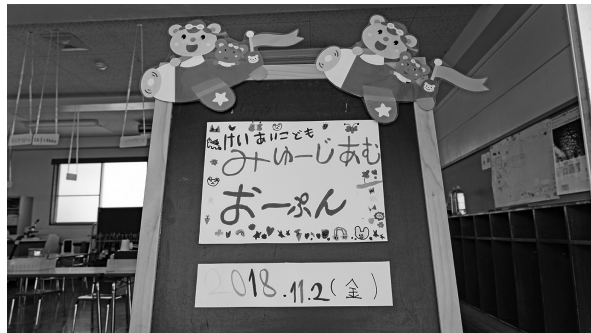 けいあいこども
みゅーじあむ
おーぷん
2018.11.2(金)